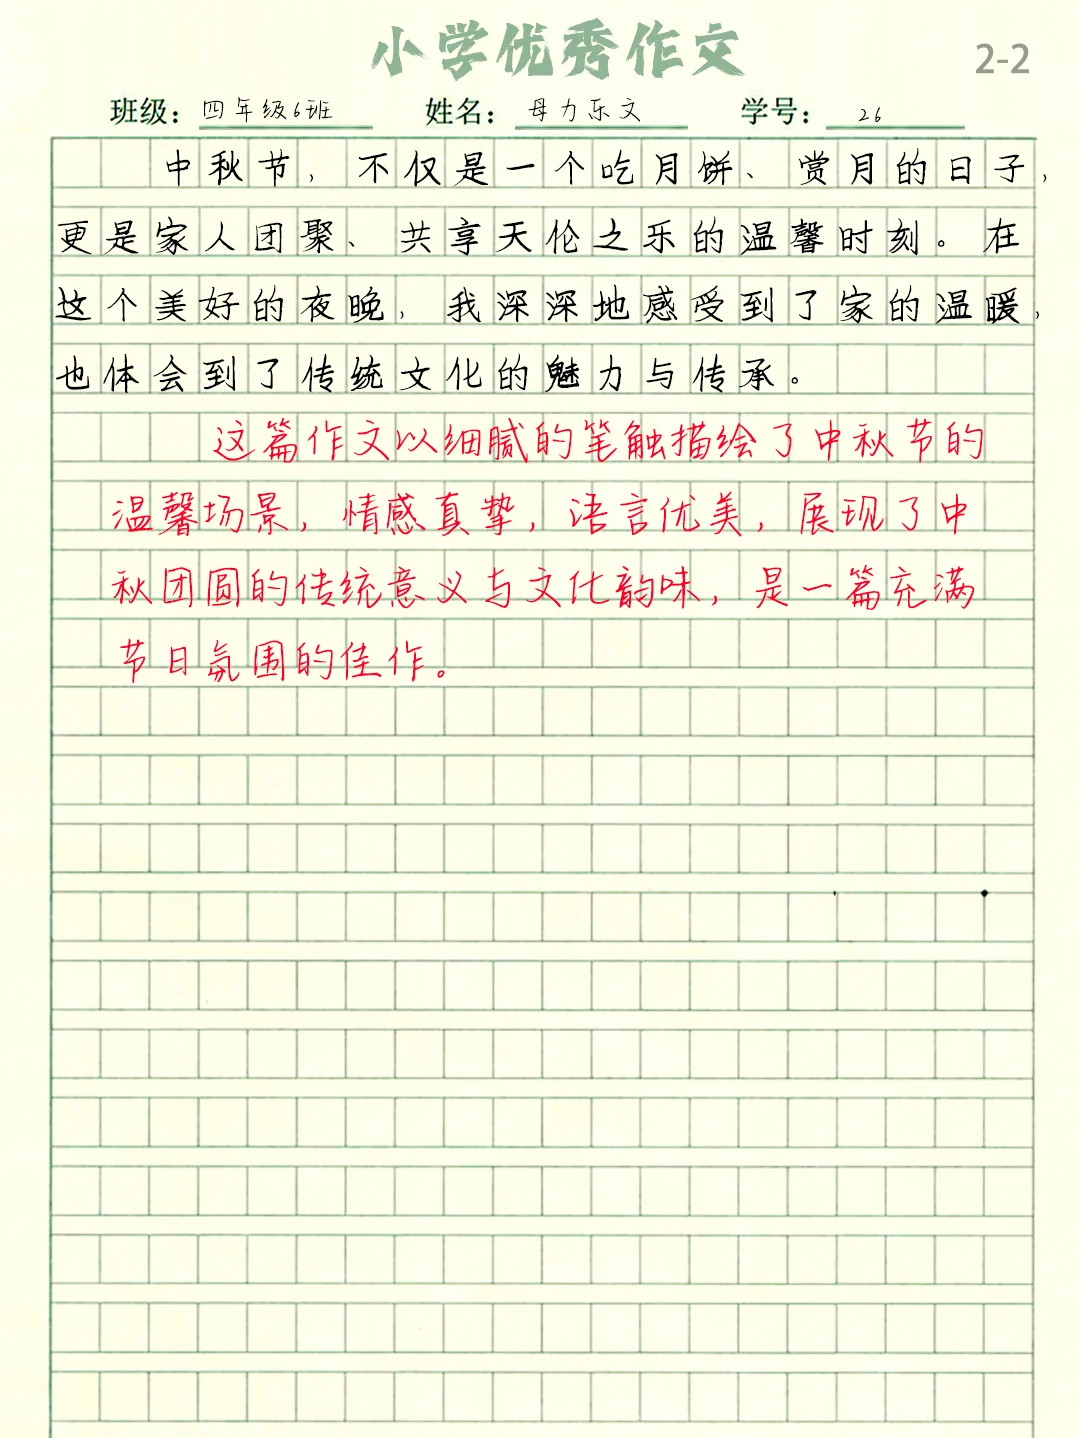 小学优秀作文
2-2
班级：四年级6班 姓名：母力乐文 学号：26
中秋节，不仅是一个吃月饼、赏月的日子，
更是家人团聚、共享天伦之乐的温馨时刻。在
这个美好的夜晚，我深深地感受到了家的温暖，
也体会到了传统文化的魅力与传承。
这篇作文以细腻的笔触描绘了中秋节的
温馨场景，情感真挚，语言优美，展现了中
秋团圆的传统意义与文化韵味，是一篇充满
节日氛围的佳作。